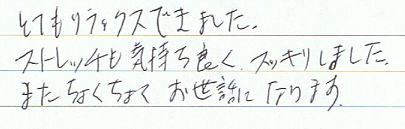 とてもリラックスできました。
ストレッチも気持ち良く、スッキリしました。
またちょくちょく お世話になります。